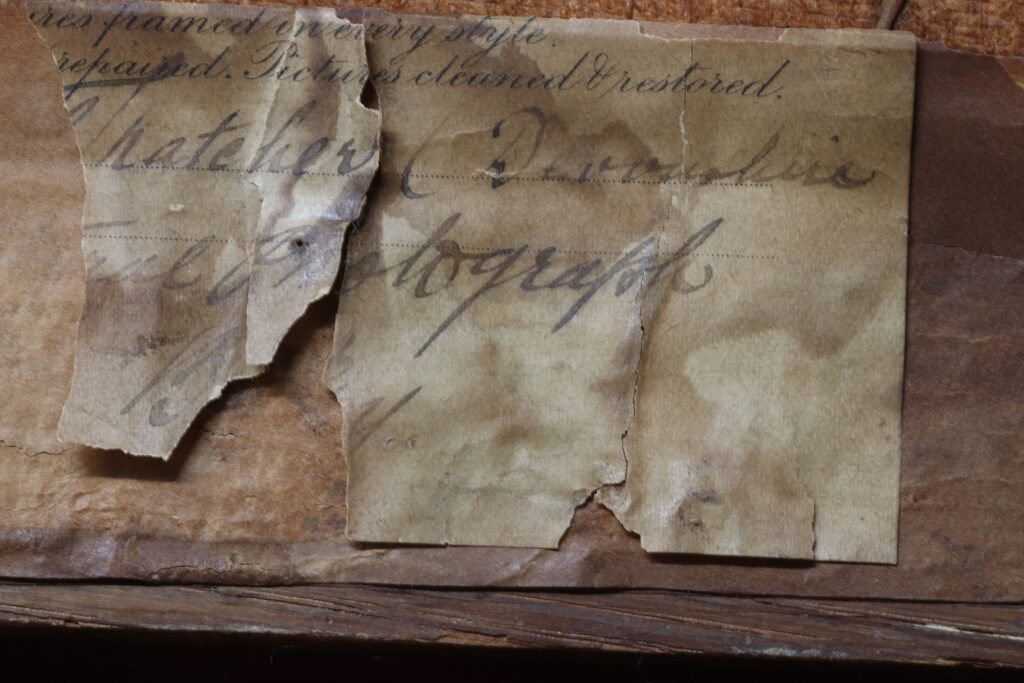 ures framed in every style.
repaired. Pictures cleaned & restored.
Thatcher ( Devonshire
Photograph